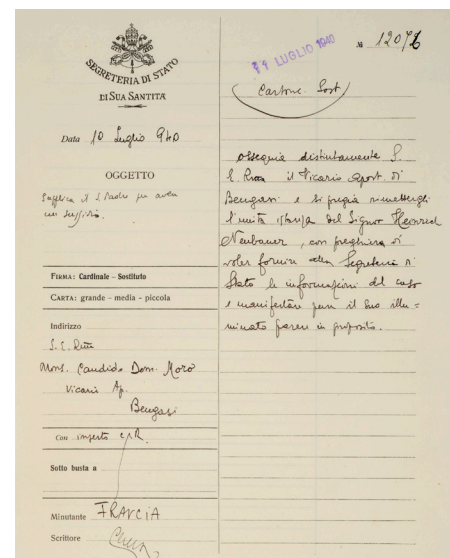 SEGRETERIA DI STATO
DI SUA SANTITÀ
Data 10 Luglio 940
OGGETTO
Supplica il S. Padre per avere
un sussidio.
FIRMA: Cardinale - Sostituto
CARTA: grande - media - piccola
Indirizzo
S. E. Rma
Mons. Candido Dom. Moro
Vicario Ap.
Bengasi
Con inserto
Sotto busta a
Minutante FRANCIA
Scrittore
11 LUGLIO 1940
№ 12072
Cartone Post
ossequia distintamente S.
E. Rma il Vicario Apost. di
Bengasi e si pregia rimettergli
l'unita istanza del Signor Heinrich
Neubauer, con preghiera di
voler fornire alla Segreteria di
Stato le informazioni del caso
e manifestare pure il Suo illu=
minato parere in proposito.